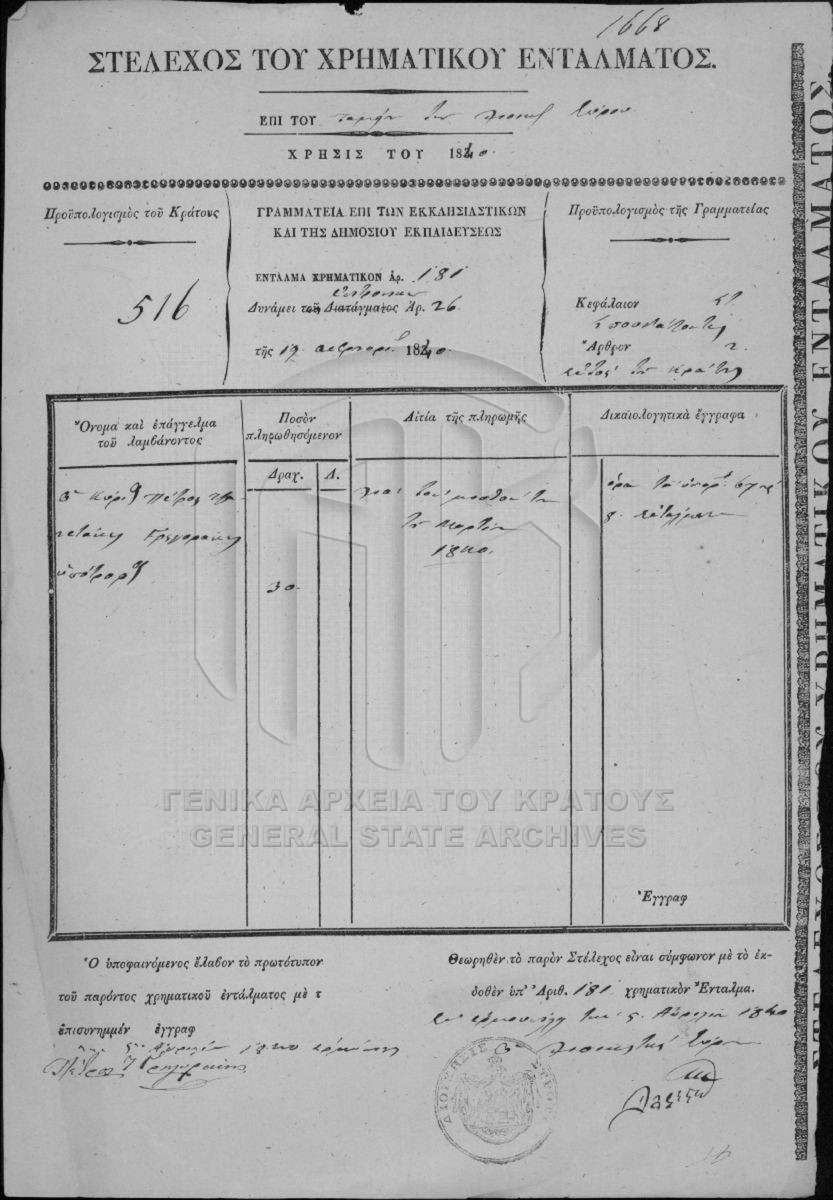 1668
ΣΤΕΛΕΧΟΣ ΤΟΥ ΧΡΗΜΑΤΙΚΟΥ ΕΝΤΑΛΜΑΤΟΣ.
ΕΠΙ ΤΟΥ
ΧΡΗΣΙΣ ΤΟΥ 1840.
Προϋπολογισμὸς τοῦ Κράτους
516
ΓΡΑΜΜΑΤΕΙΑ ΕΠΙ ΤΩΝ ΕΚΚΛΗΣΙΑΣΤΙΚΩΝ
ΚΑΙ ΤΗΣ ΔΗΜΟΣΙΟΥ ΕΚΠΑΙΔΕΥΣΕΩΣ
ΕΝΤΑΛΜΑ ΧΡΗΜΑΤΙΚΟΝ Ἀρ. 181
Δυνάμει τοῦ Διατάγματος Ἀρ. 26
τῆς 17 1840.
Προϋπολογισμὸς τῆς Γραμματείας
Κεφάλαιον
Ἄρθρον
Ὄνομα καὶ ἐπάγγελμα
τοῦ λαμβάνοντος
Ποσὸν
πληρωθησόμενον
Δραχ. Λ.
Αἰτία τῆς πληρωμῆς
Δικαιολογητικὰ ἔγγραφα
Ὁ Κύριος Πέτρος
Γρηγοράκης
ὑπότροφος
30
τοῦ Μαρτίου
1840.
Ἔγγραφ
Ὁ ὑποφαινόμενος ἔλαβον τὸ πρωτότυπον
τοῦ παρόντος χρηματικοῦ ἐντάλματος μὲ τ
ἐπισυνημμέν ἐγγραφ
5 Ἀπριλίου 1840
Πέτρος Γρηγοράκης
Θεωρηθὲν τὸ παρὸν Στέλεχος εἶναι σύμφωνον μὲ τὸ ἐκ-
δοθὲν ὑπ' Ἀριθ. 181 χρηματικὸν Ἔνταλμα.
Ἑρμουπόλει τὴν 5 Ἀπριλίου 1840
Ὁ Διοικητὴς Σύρου
ΓΕΝΙΚΑ ΑΡΧΕΙΑ ΤΟΥ ΚΡΑΤΟΥΣ
GENERAL STATE ARCHIVES
ΣΤΕΛΕΧΟΣ ΤΟΥ ΧΡΗΜΑΤΙΚΟΥ ΕΝΤΑΛΜΑΤΟΣ